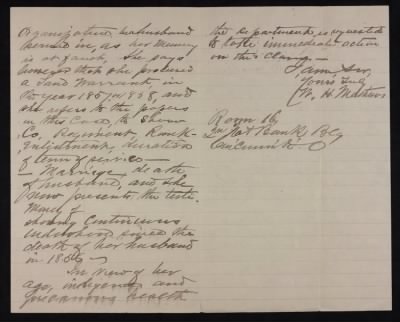 Organization her husband
served in, as her memory
is at fault, she says
however that she procured
a Land Warrant in
the year 1857 or 858, and
she refers to the papers
in this Case, to show
Co, Regiment, Rank
Enlistment, duration
of term of service —
— Marriage, death
of husband, and she
now presents, the testi-
mony of
showing Continuous
widowhood since the
death of her husband
in 1856 —
In view of her
age, indigency and
precarious health
the Department is requested
to take immediate action
on this Claim —
I am Sir,
Yours Truly
W. H. Mathews
Room 16
2nd Nat Bank Bldg
Cincinnati O